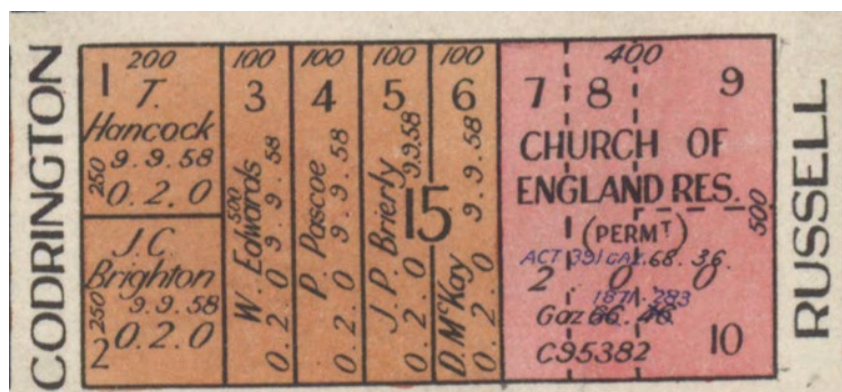 CODRINGTON
200
1
T.
Hancock
9.9.58
250
0.2.0
J.C.
Brighton
9.9.58
250
0.2.0
2
100
3
W. Edwards
500
9.9.58
0.2.0
100
4
P. Pascoe
9.9.58
0.2.0
100
5
J.P. Brierly
9.9.58
0.2.0
15
100
6
D. McKay
9.9.58
0.2.0
400
7 8 9
CHURCH OF
ENGLAND RES.
(PERMT)
500
ACT 391 GAZ. 68. 36.
2 0 0
1871. 283
Gaz
C95382
10
RUSSELL